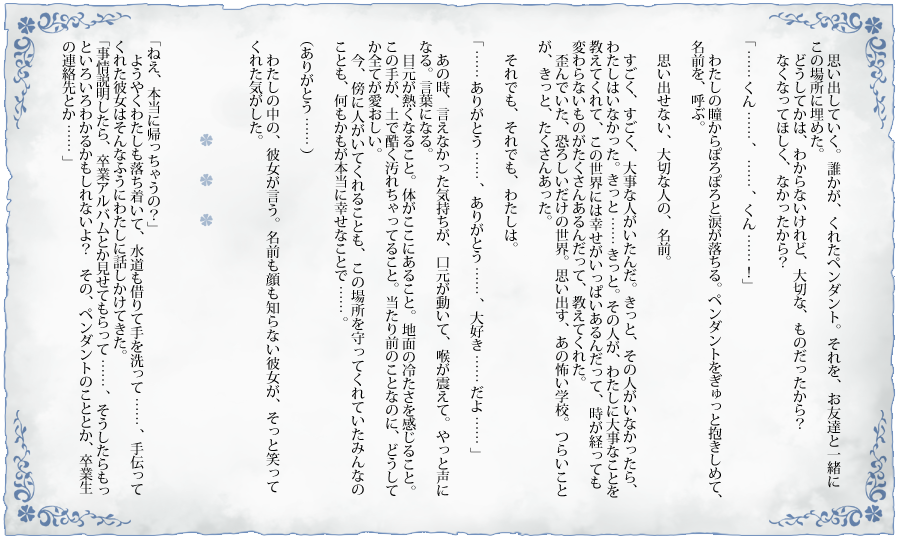 思い出していく。誰かが、くれたペンダント。それを、お友達と一緒に
この場所に埋めた。
　どうしてかは、わからないけれど、大切な、ものだったから？
　なくなってほしく、なかったから？
「……くん……、……、くん……！」
　わたしの瞳からぽろぽろと涙が落ちる。ペンダントをぎゅっと抱きしめて、
名前を、呼ぶ。
　思い出せない、大切な人の、名前。
　すごく、すごく、大事な人がいたんだ。きっと、その人がいなかったら、
わたしはいなかった。きっと……きっと。その人が、わたしに大事なことを
教えてくれて、この世界には幸せがいっぱいあるんだって、時が経っても
変わらないものがたくさんあるんだって、教えてくれた。
　歪んでいた、恐ろしいだけの世界。思い出す、あの怖い学校。つらいこと
が、きっと、たくさんあった。
　それでも、それでも、わたしは。
「……ありがとう……、ありがとう……、大好き……だよ……」
　あの時、言えなかった気持ちが、口元が動いて、喉が震えて。やっと声に
なる。言葉になる。
　目元が熱くなること。体がここにあること。地面の冷たさを感じること。
この手が、土で酷く汚れちゃってること。当たり前のことなのに、どうして
か全てが愛おしい。
　今、傍に人がいてくれることも、この場所を守ってくれていたみんなの
ことも、何もかもが本当に幸せなことで……。
（ありがとう……）
　わたしの中の、彼女が言う。名前も顔も知らない彼女が、そっと笑って
くれた気がした。
「ねえ、本当に帰っちゃうの？」
　ようやくわたしも落ち着いて、水道も借りて手を洗って……、手伝って
くれた彼女はそんなふうにわたしに話しかけてきた。
「事情説明したら、卒業アルバムとか見せてもらって……、そうしたらもっ
といろいろわかるかもしれないよ？　その、ペンダントのこととか、卒業生
の連絡先とか……」